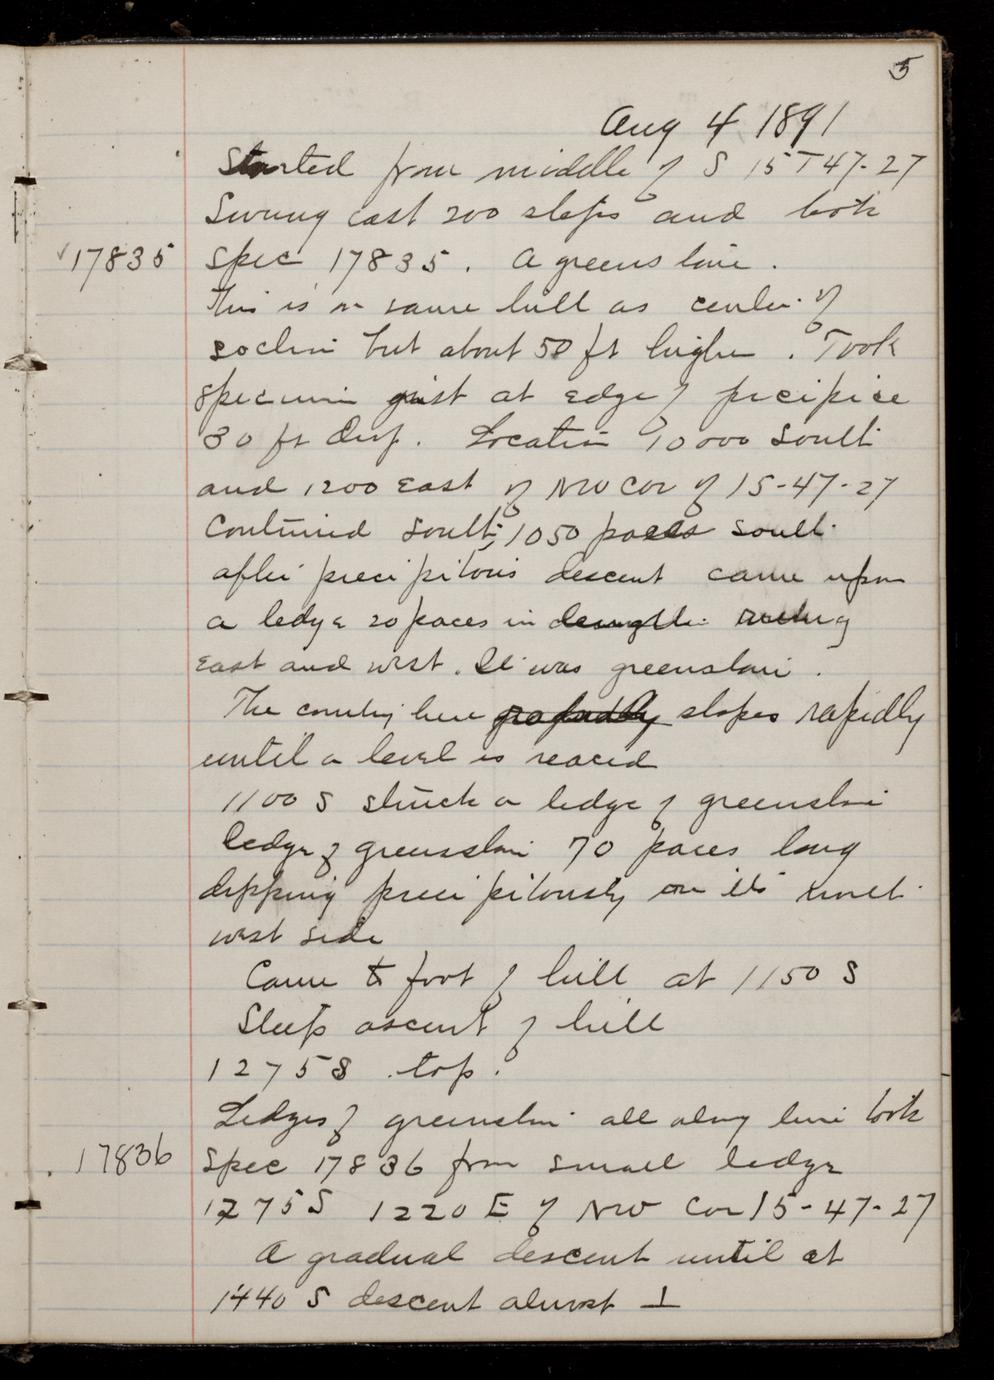 5
Aug 4 1891
Started from middle of S 15 T 47-27
Swung east 200 steps and took
17835 Spec 17835. A greenstone.
This is on same hill as center of
section but about 50 ft higher. Took
specimen just at edge of precipice
30 ft deep. Location 1000 South
and 1200 East of NW Cor of 15-47-27
Continued South, 1050 paces south
after precipitous descent came upon
a ledge 20 paces in length
East and west. It was greenstone.
The country here slopes rapidly
until a level is reaced
1100 S struck a ledge of greenstone
ledge of greenstone 70 paces long
dipping precipitously on its north
west side
Came to foot of hill at 1150 S
Steep ascent of hill
1275 S top.
Ledges of greenstone all along line took
17836 Spec 17836 from small ledge
1275 S 1220 E of NW Cor 15-47-27
A gradual descent until at
1440 S descent almost ⊥